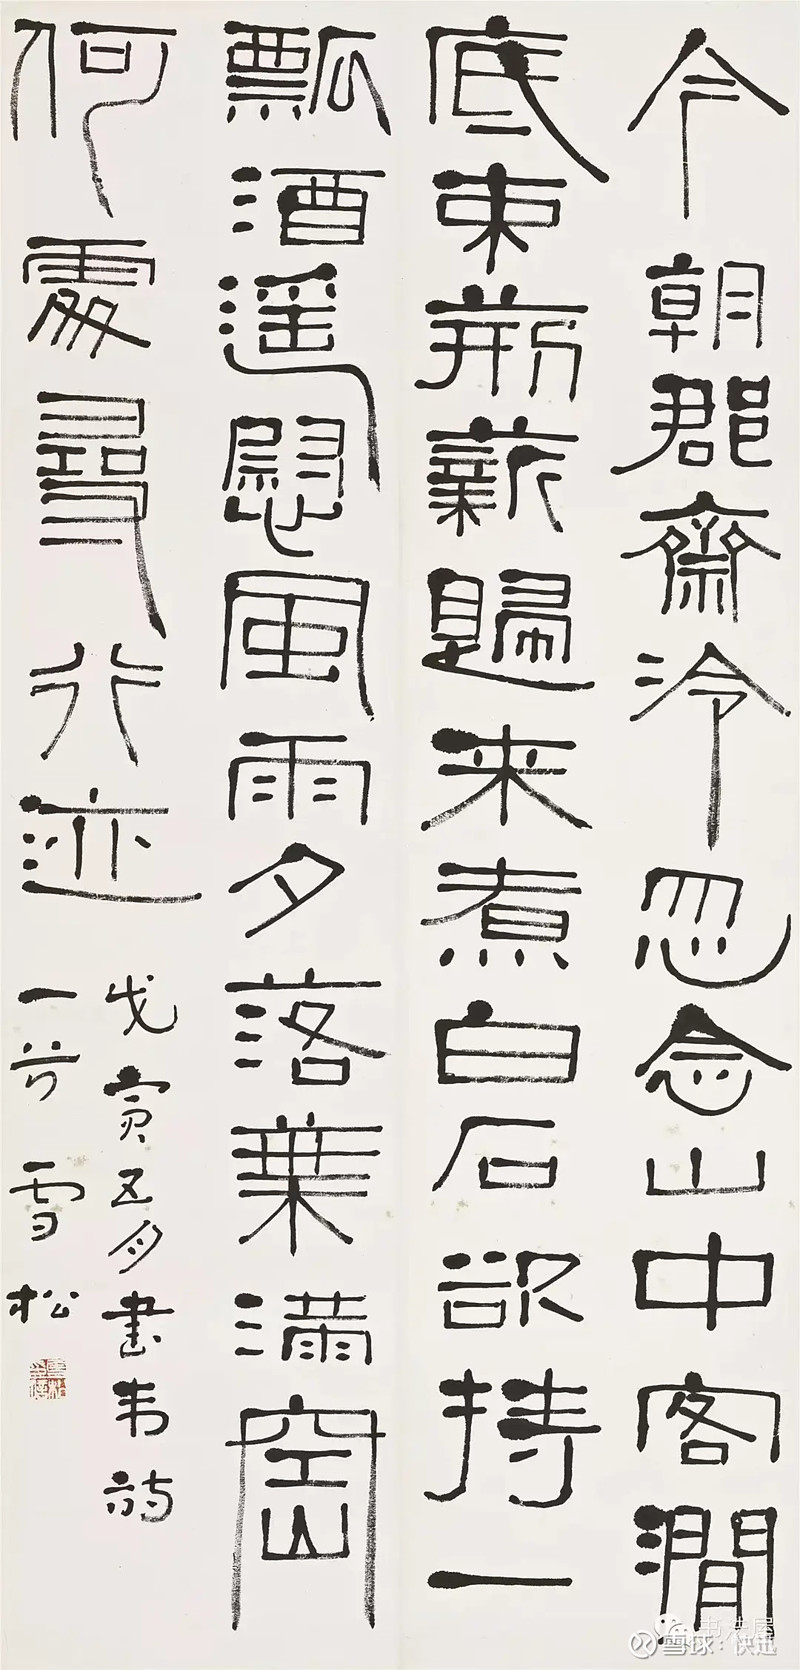 今朝郡齋冷忽念山中客澗
底束荆薪歸来煮白石欲持一
瓢酒遥慰風雨夕落葉滿空山
何處尋行迹
戊寅五月書韦詩
一首雪松
书法屋
雪球：快迅